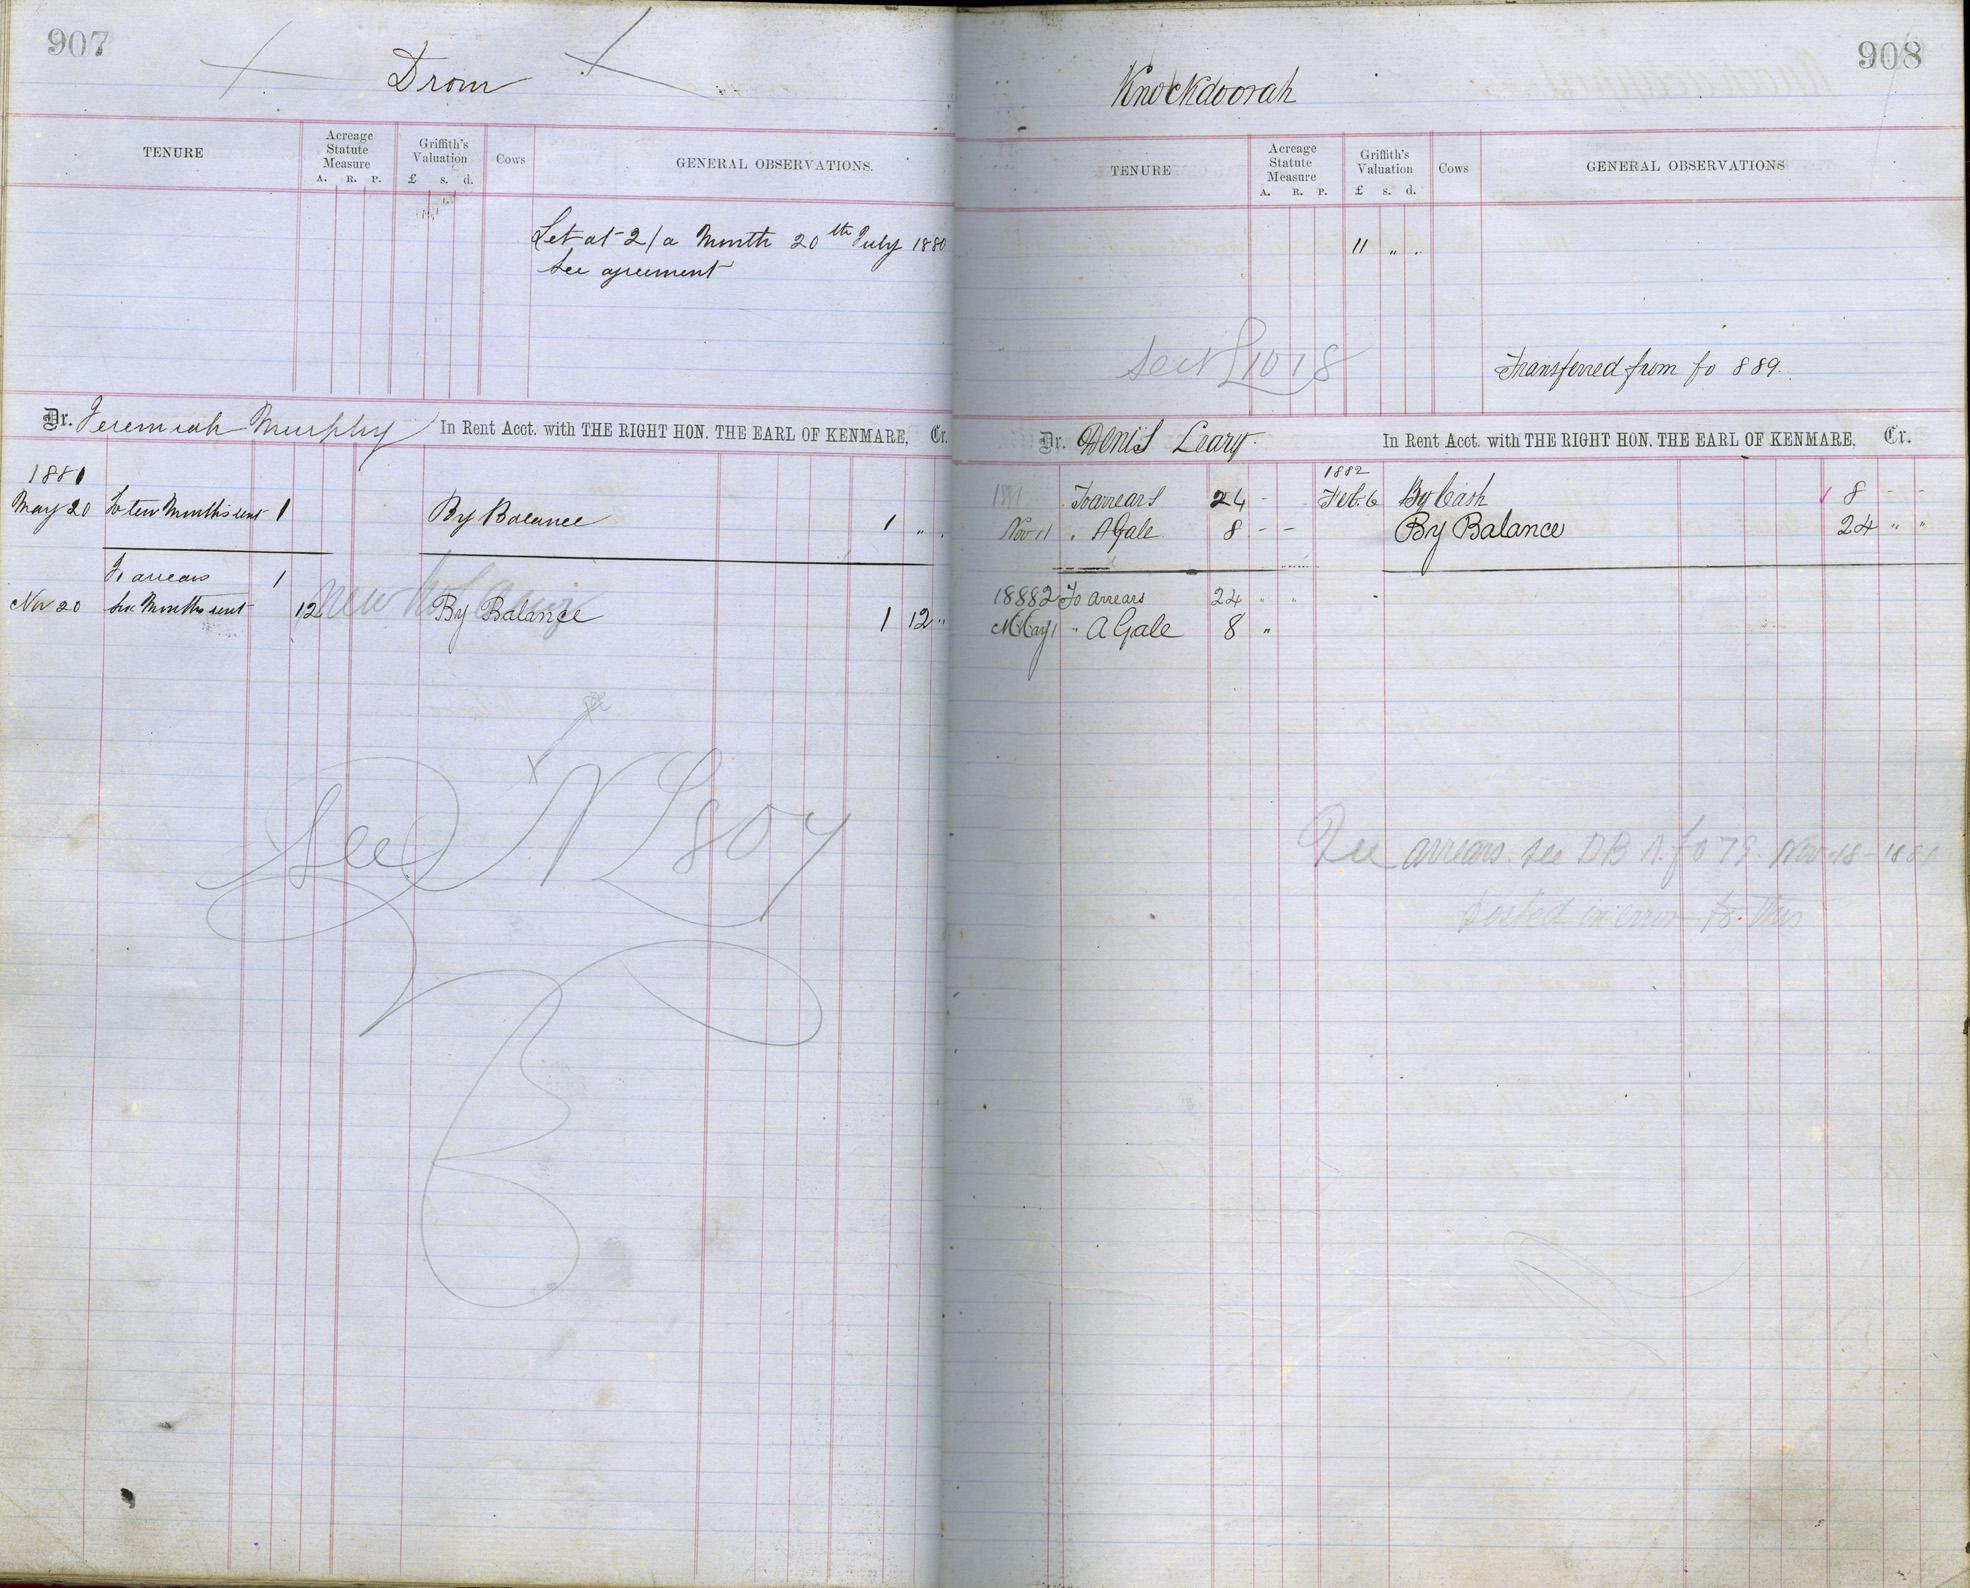 907
Drom
TENURE
Acreage Statute Measure
A. R. P.
Griffith's Valuation
£ s. d.
Cows
GENERAL OBSERVATIONS.
Let at 2/ a Month 20th July 1880
See agreement
Dr. Jeremiah Murphy In Rent Acct. with THE RIGHT HON. THE EARL OF KENMARE, Cr.
1881
May 20 To ten Months rent 1 By Balance 1 " "
To arrears 1
Nov 20 Six Months rent 12 By Balance 1 12 "
See N L 804
908
Knockdoorah
TENURE
Acreage Statute Measure
A. R. P.
Griffith's Valuation
£ s. d.
Cows
GENERAL OBSERVATIONS
11 " "
See 1018
Transferred from fo 889.
Dr. Denis Leary. In Rent Acct. with THE RIGHT HON. THE EARL OF KENMARE, Cr.
1882
1881 To arrears 24 - Feb. 6 By Cash 8 - -
Nov 11 " A Gale 8 - - By Balance 24 " "
18882 To arrears 24 " "
May 1 " A Gale 8 "
See arrears see DB fo 79. Nov 18 - 1881
posted in error to this